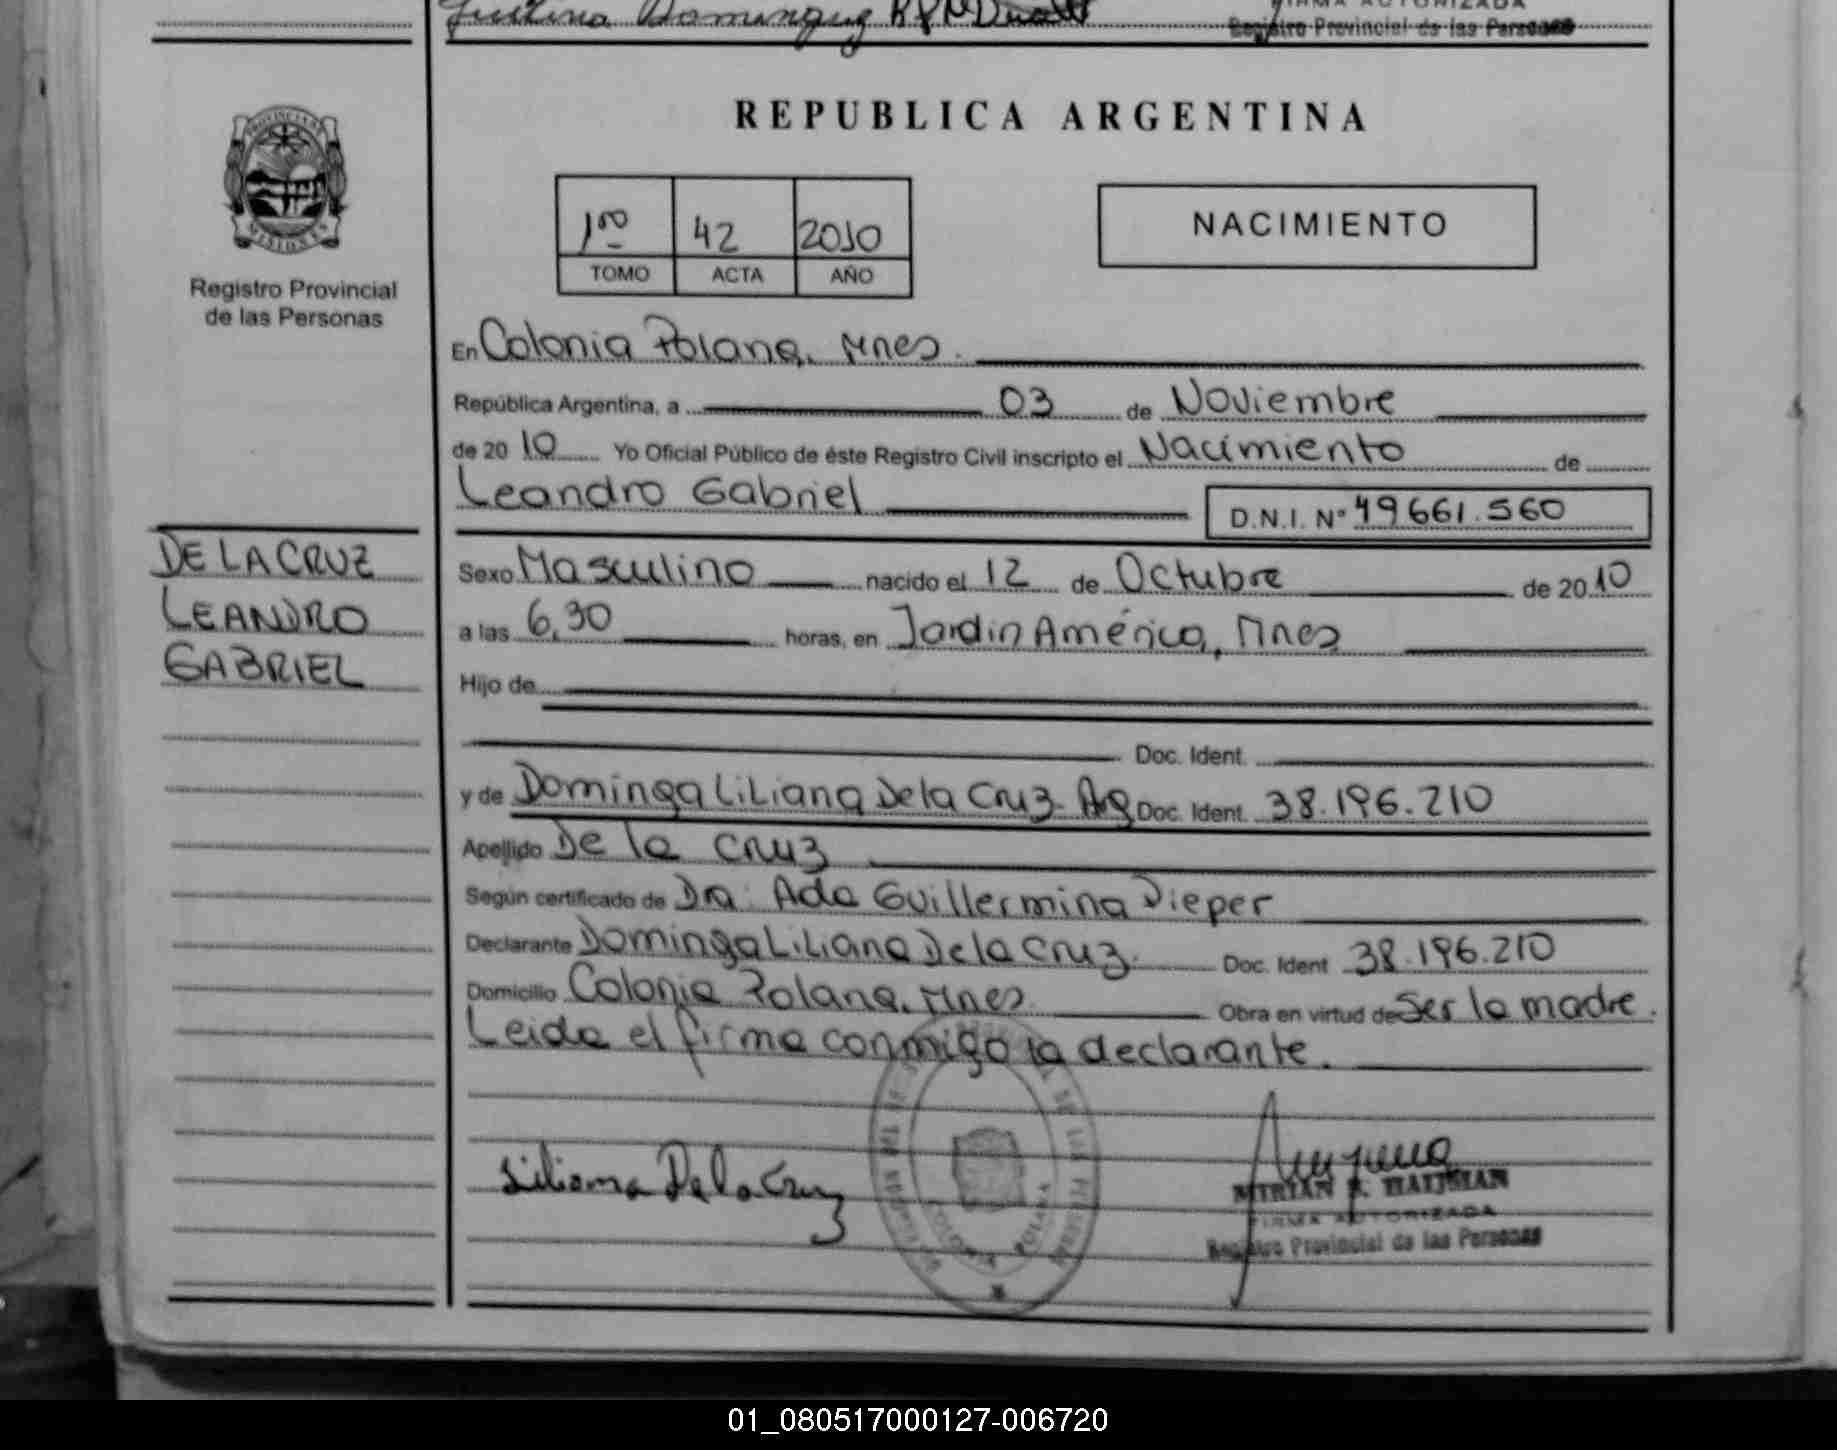 Justina Dominguez
FIRMA AUTORIZADA
Registro Provincial de las Personas
PROVINCIA DE
MISIONES
Registro Provincial
de las Personas
REPUBLICA ARGENTINA
1ro 42 2010
TOMO ACTA AÑO
NACIMIENTO
En Colonia Polana, Mnes.
República Argentina, a 03 de Noviembre
de 2010 Yo Oficial Público de éste Registro Civil inscripto el Nacimiento de
Leandro Gabriel D.N.I. Nº 49661.560
DE LA CRUZ
LEANDRO
GABRIEL
Sexo Masculino nacido el 12 de Octubre de 2010
a las 6,30 horas, en Jardin América, Mnes
Hijo de
Doc. Ident.
y de Dominga Liliana De la Cruz. Arg Doc. Ident. 38.196.210
Apellido De la Cruz
Según certificado de Dra: Ada Guillermina Dieper
Declarante Dominga Liliana De la Cruz. Doc. Ident 38.196.210
Domicilio Colonia Polana, Mnes. Obra en virtud de Ser la madre.
Leida el firma conmigo la declarante.
Liliana De la Cruz
MIRIAN
FIRMA AUTORIZADA
Registro Provincial de las Personas
COLONIA POLANA
01_080517000127-006720